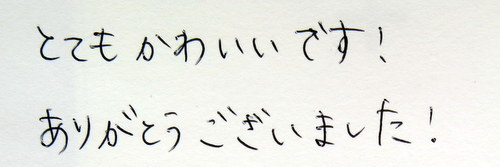 とてもかわいいです！
ありがとうございました！